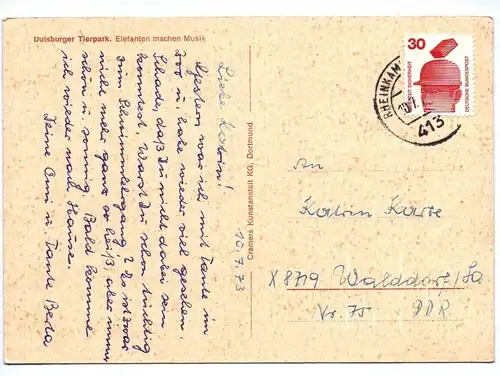 Duisburger Tierpark. Elefanten machen Musik
Liebe Katrin!
Gestern war ich mit Tante im
Zoo u. habe wieder viel gesehen.
Schade, daß Du nicht dabei sein
konntest. Warst Du schon tüchtig
zum Schwimmlehrgang? Es ist zwar
nicht mehr ganz so heiß, aber immer
schön u. sonnig. Bald komme
ich wieder nach Hause.
Deine Omi u. Tante Berta
10.7.73
Cramers Kunstanstalt KG, Dortmund
30
DEUTSCHE BUNDESPOST
RHEINKAM
413
An
Katrin Karte
X 8719 Walddorf/Sa
Nr. 75 DDR